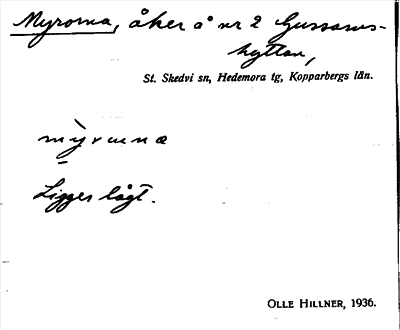 Myrorna, åker å nr 2 Gussarvs-
hyttan,
St. Skedvi sn, Hedemora tg, Kopparbergs län.
Ligger lågt.
OLLE HILLNER, 1936.